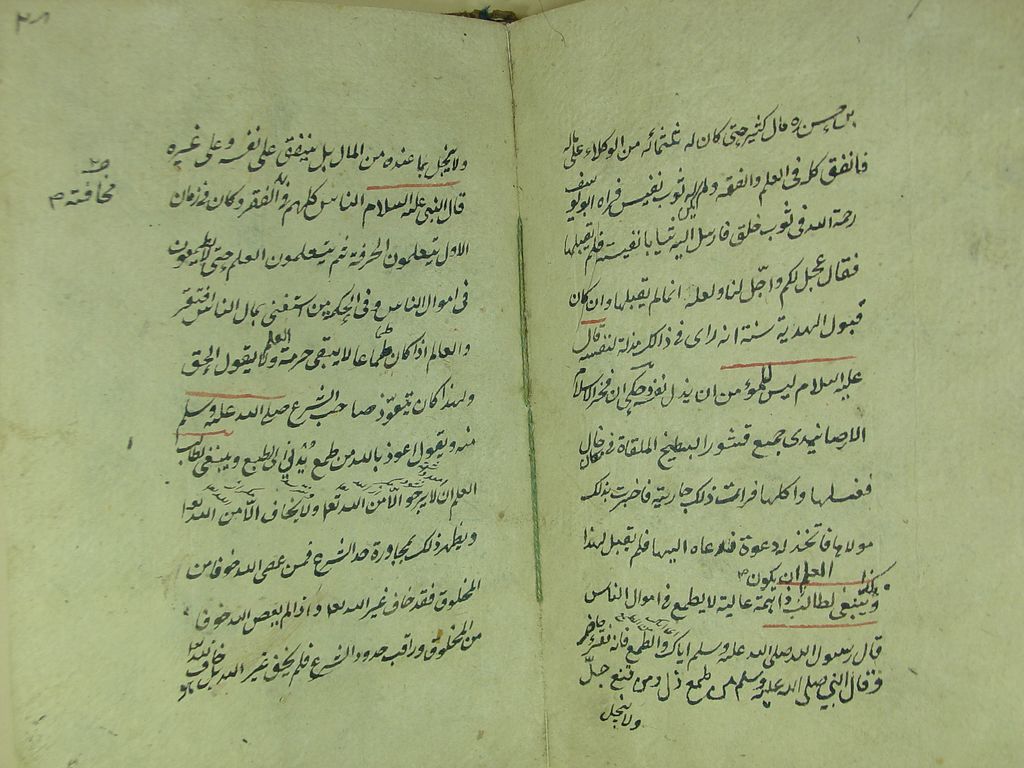 بن حسن ره مال كثير حتى كان له ثلثمائه من الوكلاء على ماله
فانفق كله فى العلم والفقه ولم يبق له ثوب نفيس فراه ابو يوسف
رحمة الله فى ثوب خلق فارسل اليه ثيابا نفيسة فلم يقبلها
فقال عجل لكم واجّل لنا ولعله انما لم يقبلها وان كان
قبول الهدية سنة انه راى فى ذالك مذلة لنفسه قال
عليه السلام ليس للمؤمن ان يذل نفسه حكى ان فخر الاسلام
الارصابندى جميع قشور البطيخ الملقاة فى مكان خال
فغسلها واكلها فرات ذلك جارية فاخبرت بذلك
مولاها فاتخذ له دعوة فدعاه اليها فلم يقبل لهذا
وهكذا ينبغى لطالب العلم ان يكون ذا همة عالية لا يطمع فى اموال الناس
قال رسول الله صلى الله عليه وسلم اياك والطمع فانه فقر حاضر
وقال النبى صلى الله عليه وسلم من طمع ذل ومن قنع جلّ
ولا يبخل
ولا يبخل بما عنده من المال بل ينفق على نفسه وعلى غيره
قال النبى عليه السلام الناس كلهم فى الفقر وكان فى زمان
الاول يتعلمون الحرفة ثم يتعلمون العلم حتى لا يطمعون
فى اموال الناس وفى الحكم من استغنى بمال الناس افتقر
والعالم اذا كان طماعا لا يبقى حرمة العلم ولا يقول الحق
ولهذا كان يتعوّذ صاحب الشرع صلى الله عليه وسلم
منه ويقول اعوذ بالله من طمع يُدنى الى الطبع وينبغى لطالب
العلم ان لا يرجو الّا من الله تعا ولا يخاف الّا من الله تعا
ويظهر ذلك بمجاوزة حد الشرع فمن عصى الله خوفا من
المخلوق فقد خاف غير الله تعا واذا لم يعص الله خوفا
من المخلوق وراقب حدود الشرع فلم يخف غير الله بل خاف الله
مخافته